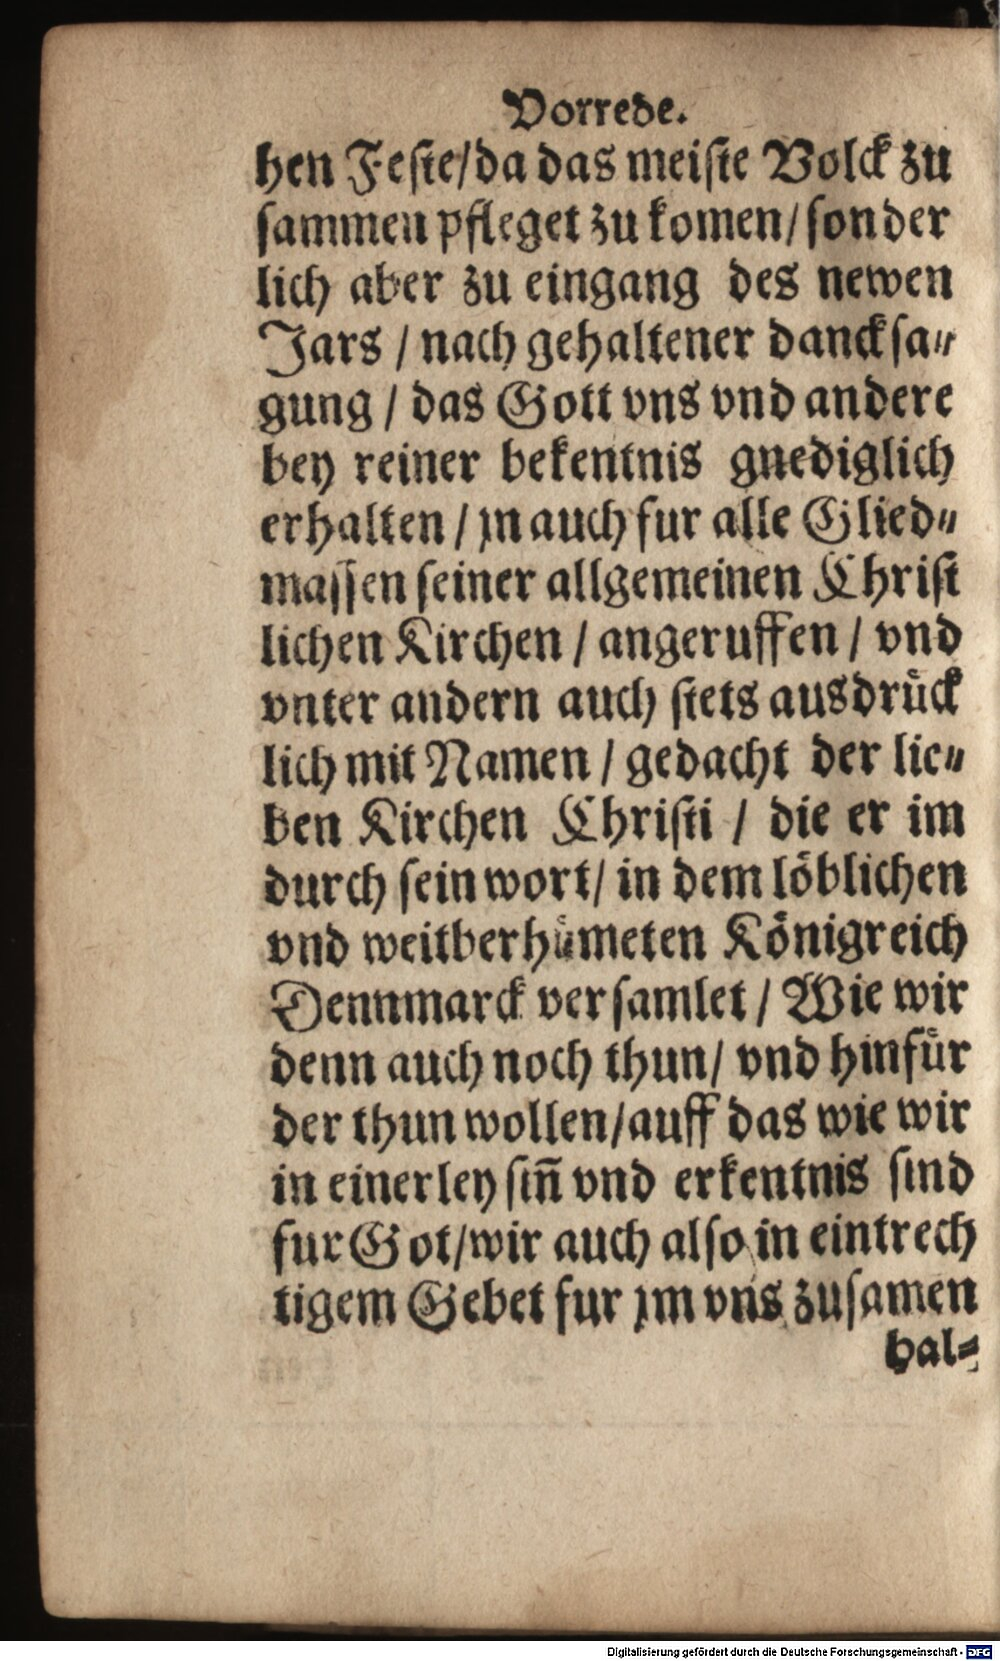 Vorrede.
hen Feste/da das meiste Volck zu
sammen pfleget zu komen/sonder
lich aber zu eingang des newen
Jars / nach gehaltener dancksa⸗
gung / das Gott vns vnd andere
bey reiner bekentnis gnediglich
erhalten / jn auch fur alle Glied⸗
massen seiner allgemeinen Christ
lichen Kirchen / angeruffen / vnd
vnter andern auch stets ausdruͤck
lich mit Namen / gedacht der lie⸗
ben Kirchen Christi / die er im
durch sein wort/ in dem loͤblichen
vnd weitberhuͤmeten Koͤnigreich
Dennmarck versamlet / Wie wir
denn auch noch thun/ vnd hinfuͤr
der thun wollen/auff das wie wir
in einerley sin̄ vnd erkentnis sind
fur Got/wir auch also in eintrech
tigem Gebet fur jm vns zusamen
hal⸗
Digitalisierung gefördert durch die Deutsche Forschungsgemeinschaft - DFG